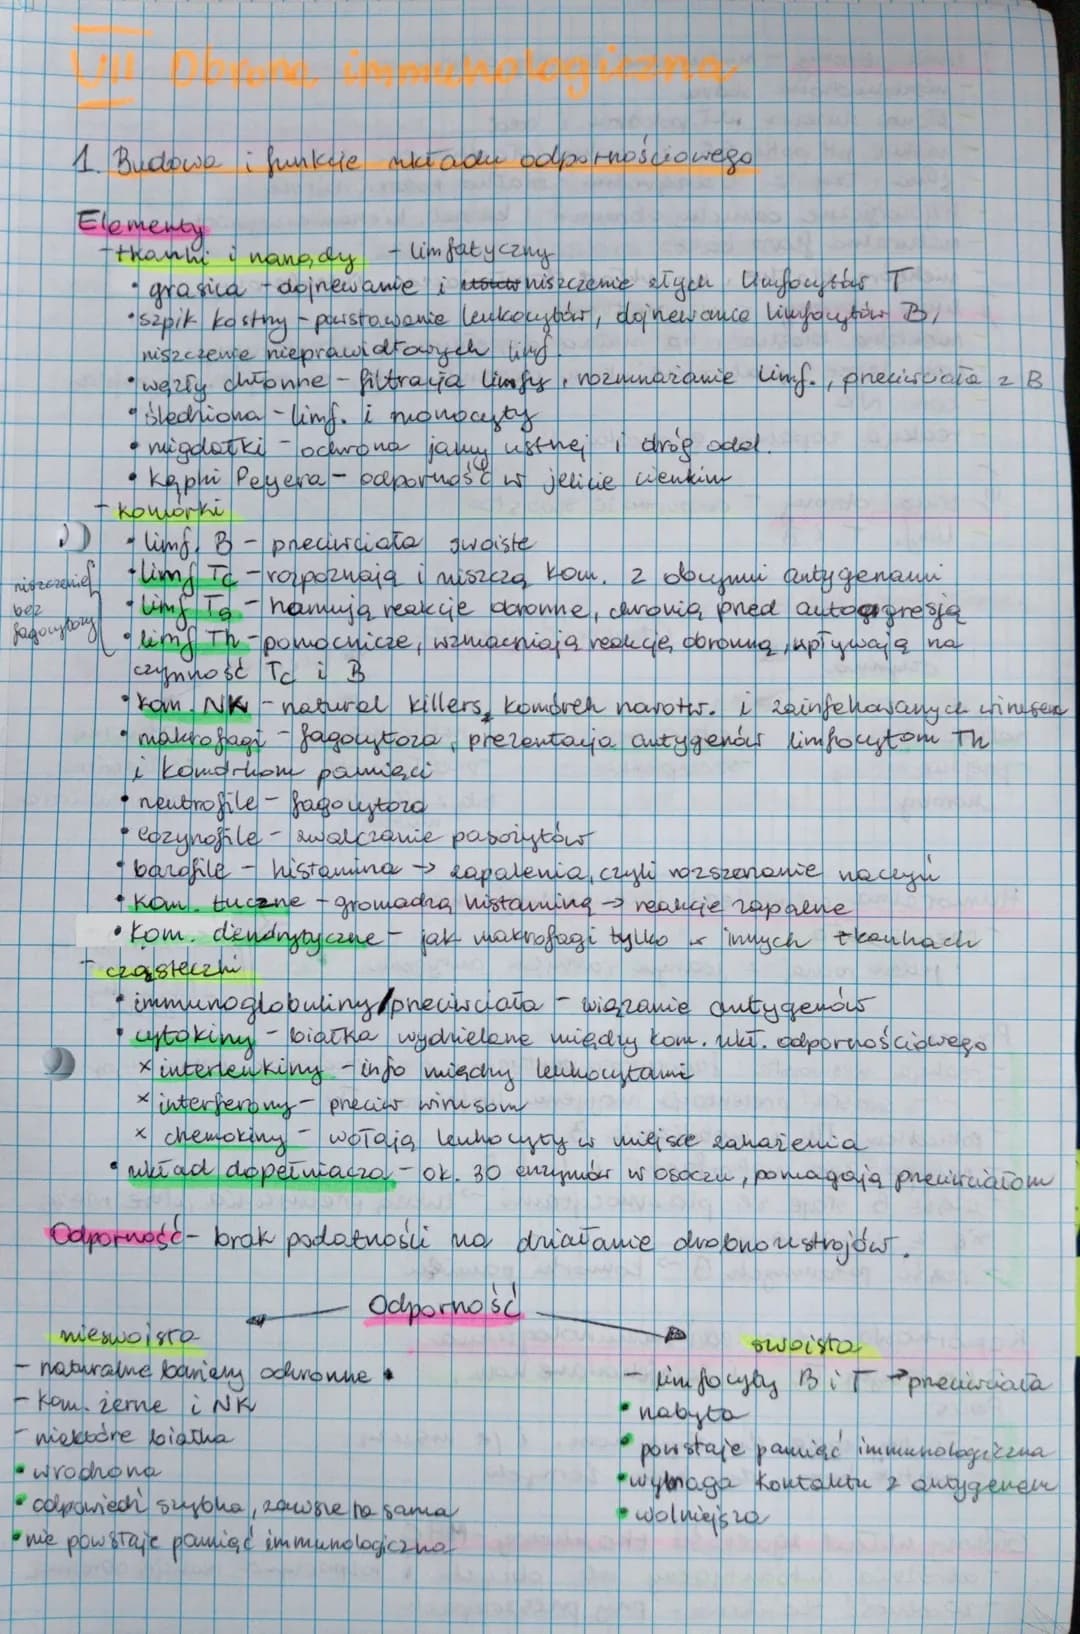 VII Obrona immunologiczna
1. Budowa i funkcje układu odpornościowego
Elementy
- tkanki i narządy - limfatyczny
• grasica - dojrzewanie i niszczenie złych limfocytów T
• szpik kostny - powstawanie leukocytów, dojrzewanie limfocytów B,
niszczenie nieprawidłowych limf.
• węzły chłonne - filtracja limfy, rozmnażanie limf., przeciwciała z B
• śledziona - limf. i monocyty
• migdałki - ochrona jamy ustnej i dróg odd.
• kępki Peyera - odporność w jelicie cienkim
- komórki
• limf. B - przeciwciała swoiste
• limf Tc - rozpoznają i niszczą kom. z obcymi antygenami
niszczenie
bez
fagocytozy
• limf Ts - hamują reakcje obronne, chronią przed autoagresją
• limf Th - pomocnicze, wzmacniają reakcję obronną, wpływają na
czynność Tc i B
• kom. NK - natural killers, komórek nowotw. i zainfekowanych wirusem
• makrofagi - fagocytoza, prezentacja antygenów limfocytom Th
i komórkom pamięci
• neutrofile - fagocytoza
• eozynofile - zwalczanie pasożytów
• bazofile - histamina → zapalenia, czyli rozszerzanie naczyń
• kom. tuczne - gromadzą histaminę → reakcje zapalne
• kom. dendrytyczne - jak makrofagi tylko w innych tkankach
- cząsteczki
• immunoglobuliny/przeciwciała - wiązanie antygenów
• cytokiny - białka wydzielane między kom. ukł. odpornościowego
x interleukiny - info między leukocytami
x interferony - przeciw wirusom
x chemokiny - wołają leukocyty w miejsce zakażenia
• układ dopełniacza - ok. 30 enzymów w osoczu, pomagają przeciwciałom
Odporność - brak podatności na działanie drobnoustrojów.
Odporność
nieswoista
- naturalne bariery ochronne •
- kom. żerne i NK
- niektóre białka
• wrodzona
• odpowiedź szybka, zawsze ta sama
• nie powstaje pamięć immunologiczna
swoista
- limfocyty B i T → przeciwciała
• nabyta
• powstaje pamięć immunologiczna
• wymaga kontaktu z antygenem
• wolniejsza